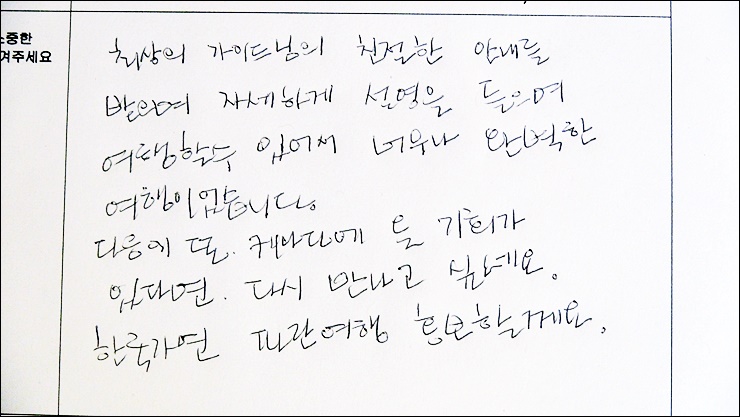 소중한
겨주세요
최상의 가이드님의 친절한 안내를
받으며 자세하게 설명을 들으며
여행할수 있어서 너무나 완벽한
여행이었습니다.
다음에 또. 캐나다에 올 기회가
있다면. 다시 만나고 싶네요.
한국가면 파란여행 홍보할께요.